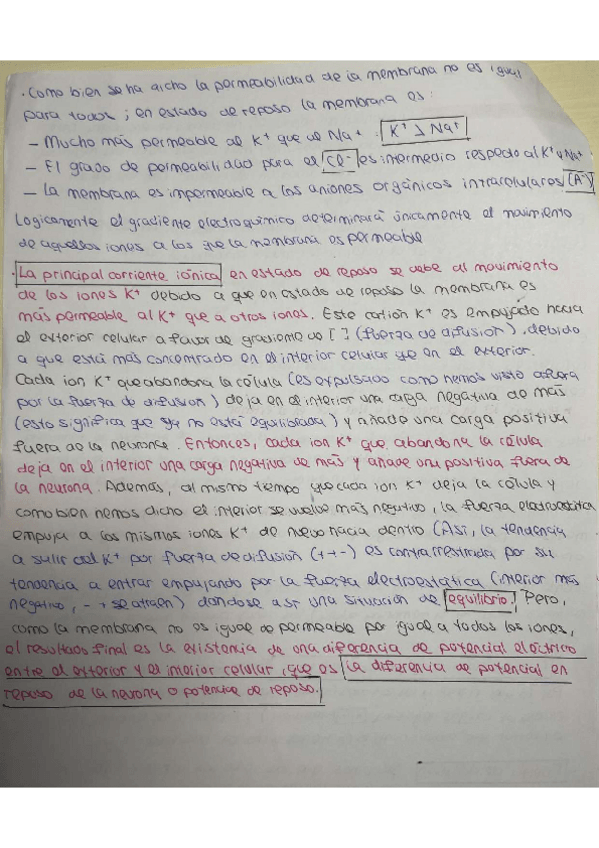 · Como bien se ha dicho la permeabilidad de la membrana no es igual
para todos ; en estado de reposo la membrana es:
– Mucho más permeable al K+ que al Na+ . K+ > Na+
– El grado de permeabilidad para el Cl- es intermedio respecto al K+ y Na+
– La membrana es impermeable a los aniones orgánicos intracelulares (A-)
Logicamente el gradiente electroquímico determinará únicamente el movimiento
de aquellos iones a los que la membrana es permeable
· La principal corriente iónica en estado de reposo se debe al movimiento
de los iones K+ debido a que en estado de reposo la membrana es
más permeable al K+ que a otros iones. Este catión K+ es empujado hacia
el exterior celular a favor de gradiente de [ ] (fuerza de difusión), debido
a que está más concentrado en el interior celular que en el exterior.
Cada ion K+ que abandona la célula (es expulsado como hemos visto afuera
por la fuerza de difusion) deja en el interior una carga negativa de más
(esto significa que ya no está equilibrada) y añade una carga positiva
fuera de la neurona. Entonces, cada ion K+ que abandona la célula
deja en el interior una carga negativa de más y añade una positiva fuera de
la neurona. Además, al mismo tiempo que cada ion K+ deja la célula y
como bien hemos dicho el interior se vuelve más negativo, la fuerza electroestática
empuja a los mismos iones K+ de nuevo hacia dentro (Así, la tendencia
a salir del K+ por fuerza de difusión (++-) es contrarrestrada por su
tendencia a entrar empujando por la fuerza electroestática (interior más
negativo, - + se atraen) dandose así una situación de equilibrio. Pero,
como la membrana no es igual de permeable por igual a todos los iones,
el resultado final es la existencia de una diferencia de potencial eléctrico
entre el exterior y el interior celular, que es la diferencia de potencial en
reposo de la neurona o potencial de reposo.